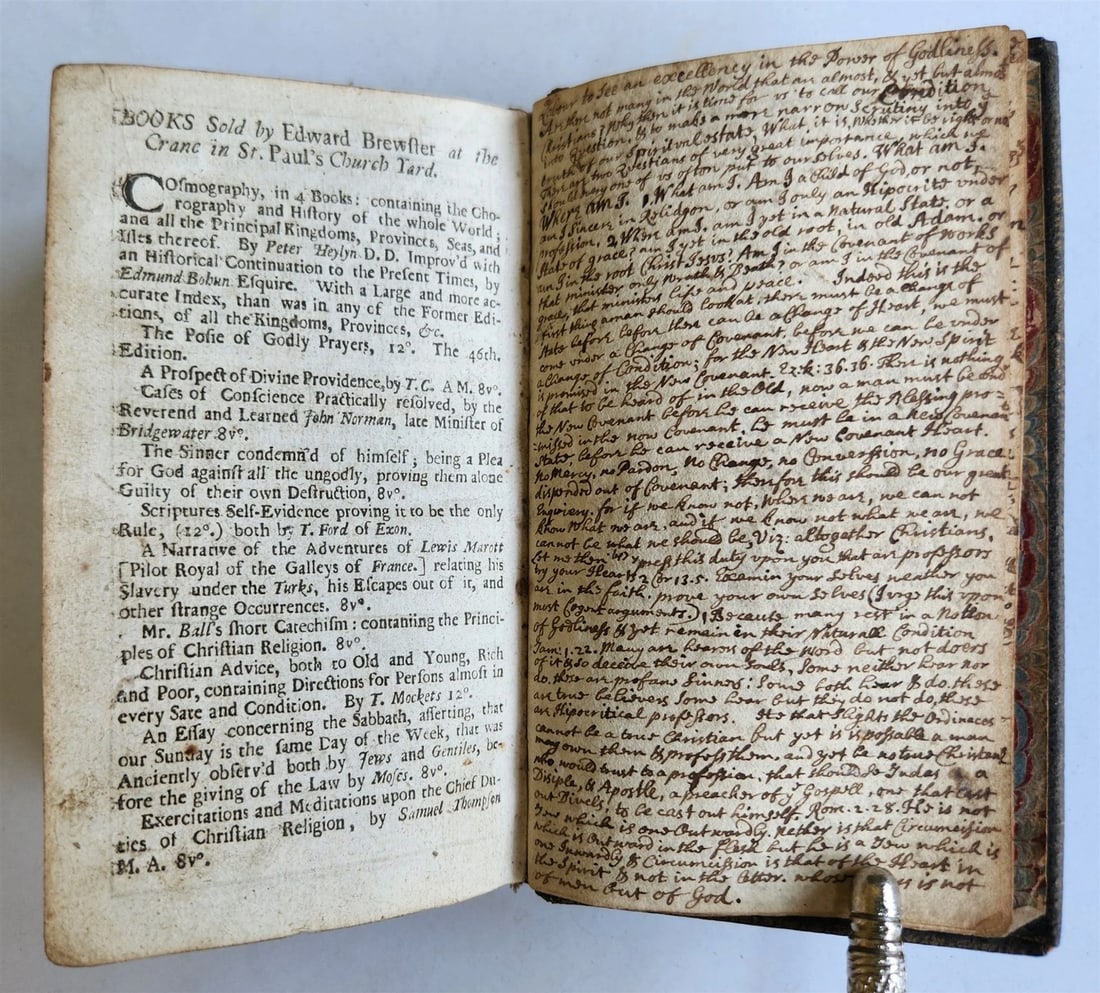 BOOKS Sold by Edward Brewster at the
Crane in St. Paul's Church Yard.
COsmography, in 4 Books: containing the Cho-
rography and History of the whole World;
and all the Principal Kingdoms, Provinces, Seas, and
Isles thereof. By Peter Heylyn D. D. Improv'd with
an Historical Continuation to the Present Times, by
Edmund Bohun Esquire. With a Large and more ac-
curate Index, than was in any of the Former Edi-
tions, of all the Kingdoms, Provinces, &c.
The Posie of Godly Prayers, 12°. The 46th.
Edition.
A Prospect of Divine Providence, by T. C. A M. 8v°.
Cases of Conscience Practically resolved, by the
Reverend and Learned John Norman, late Minister of
Bridgewater. 8v°.
The Sinner condemn'd of himself; being a Plea
for God against all the ungodly, proving them alone
Guilty of their own Destruction, 8v°.
Scriptures Self-Evidence proving it to be the only
Rule, (12°.) both by T. Ford of Exon.
A Narrative of the Adventures of Lewis Marott
[Pilot Royal of the Galleys of France.] relating his
Slavery under the Turks, his Escapes out of it, and
other strange Occurrences. 8v°.
Mr. Ball's short Catechism: contaniing the Princi-
ples of Christian Religion. 8v°.
Christian Advice, both to Old and Young, Rich
and Poor, containing Directions for Persons almost in
every Sate and Condition. By T. Mockets 12°.
An Essay concerning the Sabbath, asserting, that
our Sunday is the same Day of the Week, that was
Anciently observ'd both by Jews and Gentiles, be-
fore the giving of the Law by Moses. 8v°.
Exercitations and Meditations upon the Chief Du-
ties of Christian Religion, by Samuel Thompsen
M. A. 8v°.
to See an excellency in the Power of Godliness.
Are there not many in the World that an almost, & yet but almost
Christians? Why then it is time for us to call our Condition
into Question, & to make a more narrow Scrutiny into ye
truth of our Spiritval estate, What it is, whether it be right or no
There are two Questians of very great importance, which we
Should many one of us often put to ourselves. What am I.
Where am I. 1. What am I. Am I a Child of God, or not,
am I Sincere in Relidgon, or am I only an Hipocrite vnder
profession, 2. Where am I. am I yet in a Natural State, or a
State of grace? am I yet in the old root, in old Adam. or
am I in the root Christ Jesus? Am I in the Covenant of Works
that minister only Wrath & Death? or am I in the Covenant of
grace, that ministers life and peace. Indeed this is the
first thing a man should look at. there must be a Change of
State before before there can be a Change of Heart, we must
come vnder a Change of Covenant, before we can be vnder
a Change of Condition; for the New Heart & the New Spirit
is promised in the New Covenant. Ezek: 36.36. Ther is nothing
of that to be heard of in the Old, now a man must be
the New Covenant before he can receive the Blessing pro=
=mised in the now Covenant. he must be in a New Covenant
State, before he can receive a New Covenant Heart.
No Mercy, no Pardon, No Change, no Conversion, no Grace
dispended out of Covenant; therfore this should be our great
Enquiery. for if we know not, Where we are, we can not
know What we are, and if we know not what we are, we
cannot be what we should be, Viz: altogether Christians.
Let me then press this duty vpon you that are professors
try your Hearts 2 Cor 13.5. Examin your Selves neather you
are in the faith. prove your own Selves (I vrge this vpon
most Cogent arguments.) 1 Because many rest in a Notion
of Godliness & yet remain in their Naturall Condition
Jam: 1.22. Many are hearers of the Word but not doers
of it & so deceive their own Souls, Some neither hear nor
do. these are profane Sinners: Some both hear & do. these
are true believers Some hear but they do not do, these
are Hipocritical professors. He that Slights the Ordinaces
cannot be a true Christian but yet is is possable a man
may own them & profess them. and yet be no true Christian
who would trust to a profession, that should So Judas a
Disciple, & Apostle, a preacher of ye Gospell, one that Cast
out Divels to be cast out himself. Rom: 2.28. He is not
a Jew which is one Outwardly. nether is that Circumcision
which is Outward in the flesh but he is a Jew which is
one Inwardly & Circumcission is that of the Heart in
the Spirit & not in the Letter. whose is not
of men but of God.